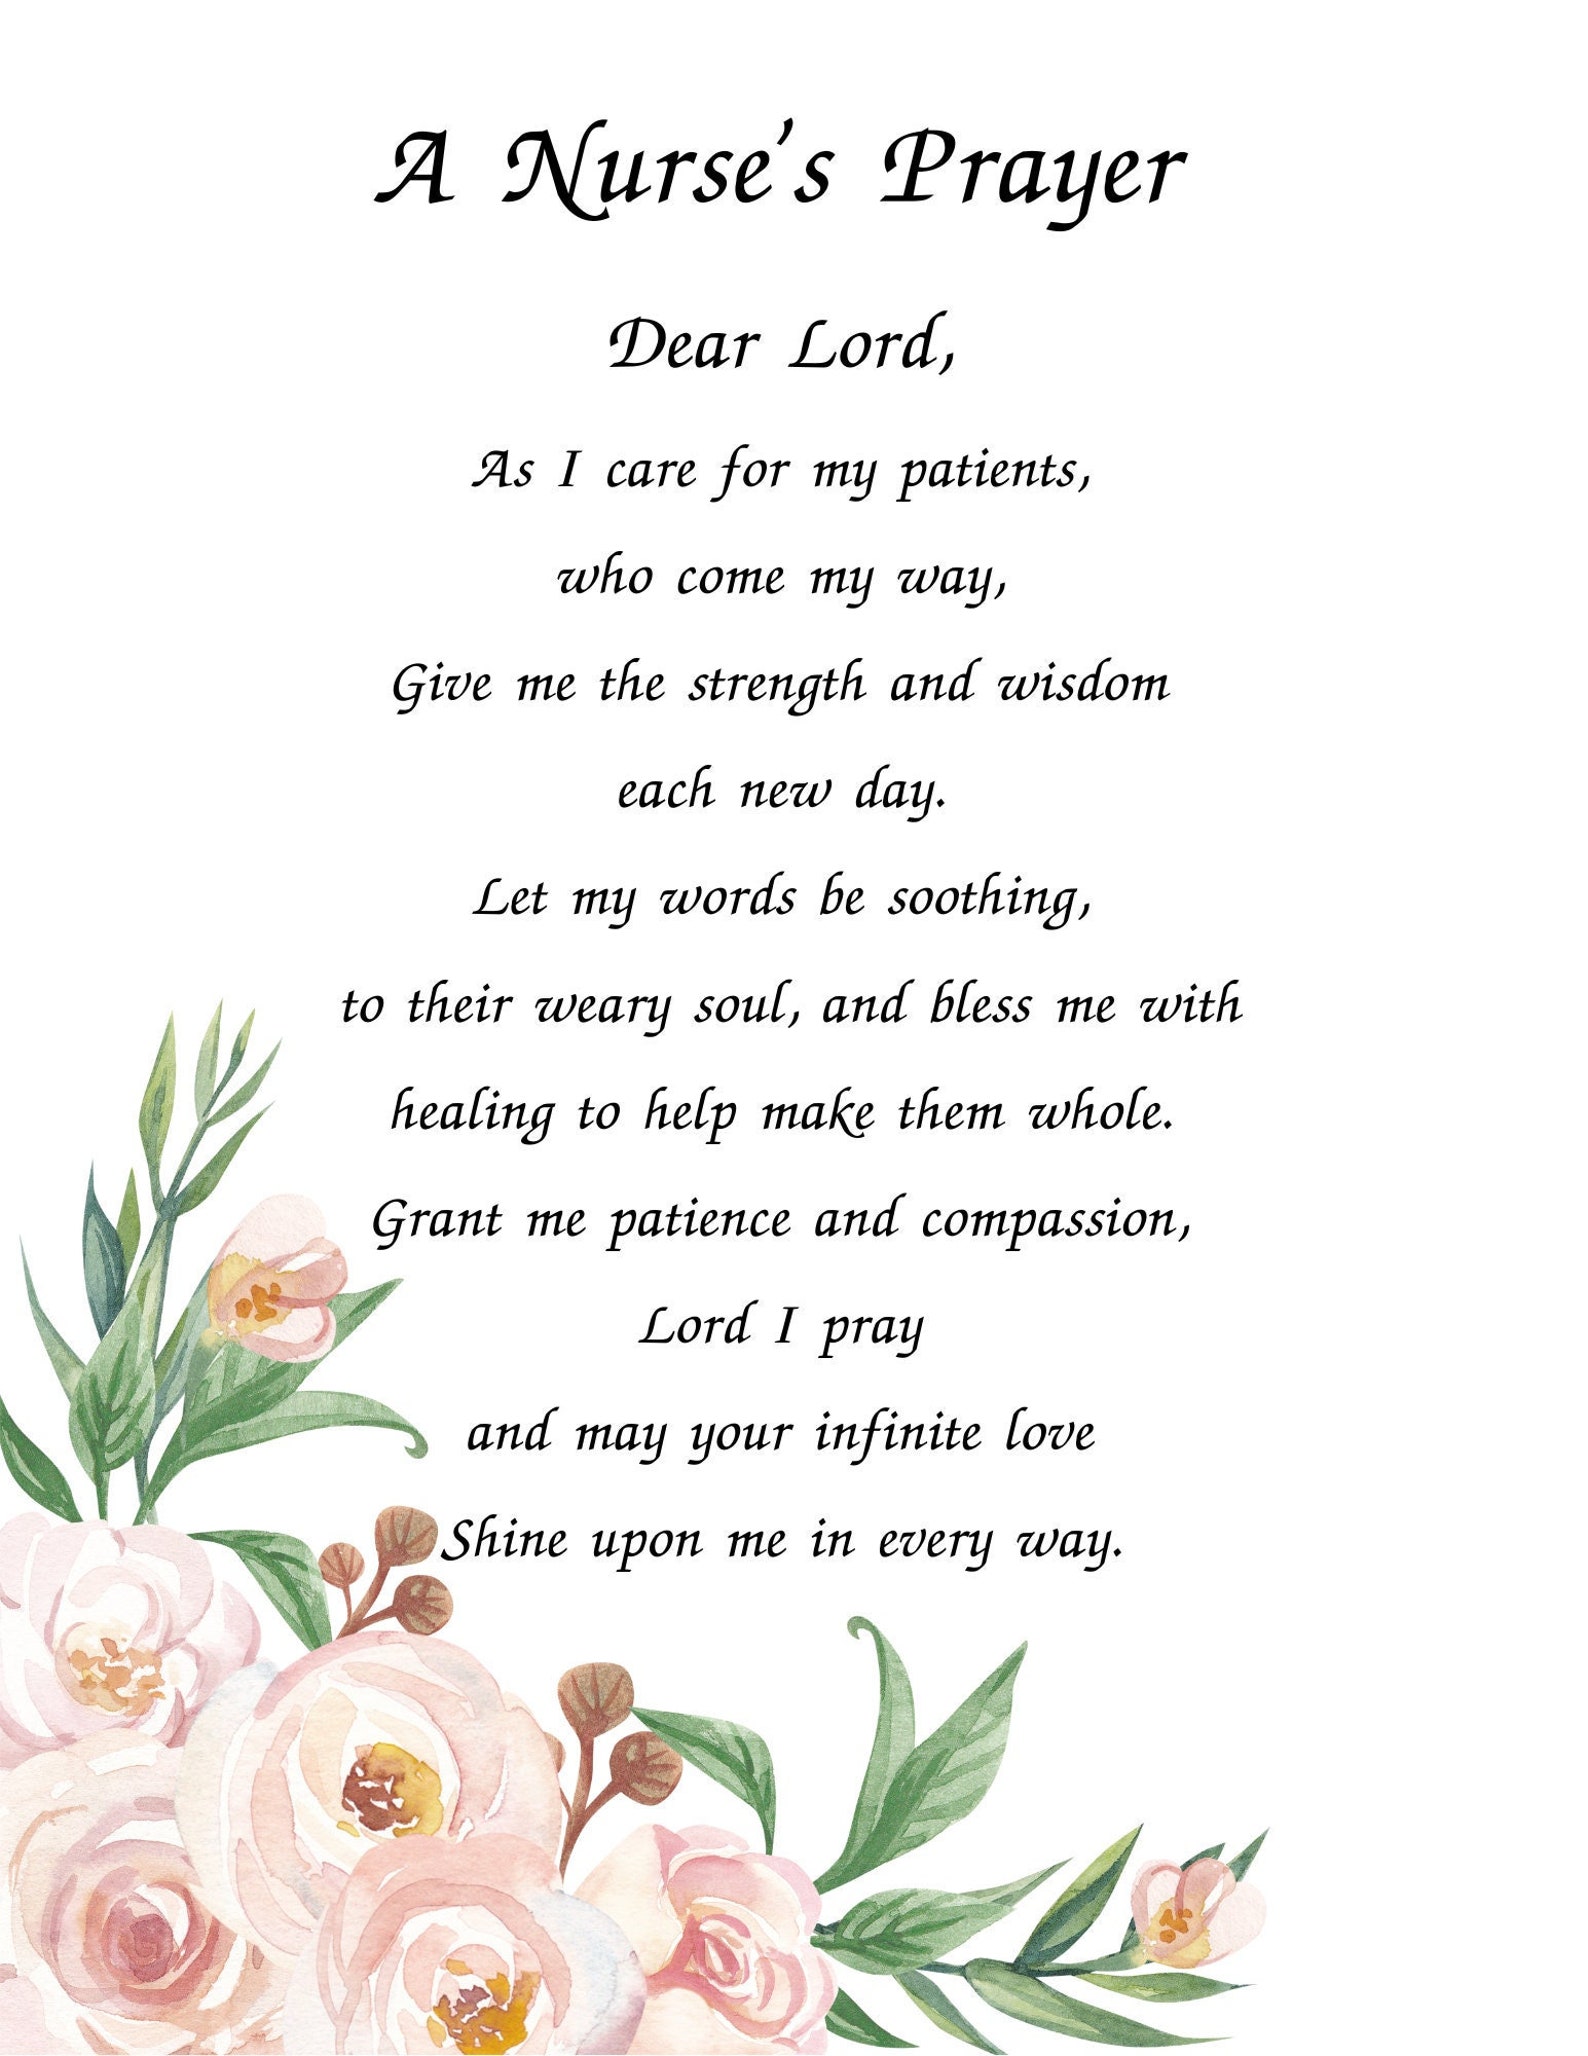 A Nurse's Prayer
Dear Lord,
As I care for my patients,
who come my way,
Give me the strength and wisdom
each new day.
Let my words be soothing,
to their weary soul, and bless me with
healing to help make them whole.
Grant me patience and compassion,
Lord I pray
and may your infinite love
Shine upon me in every way.